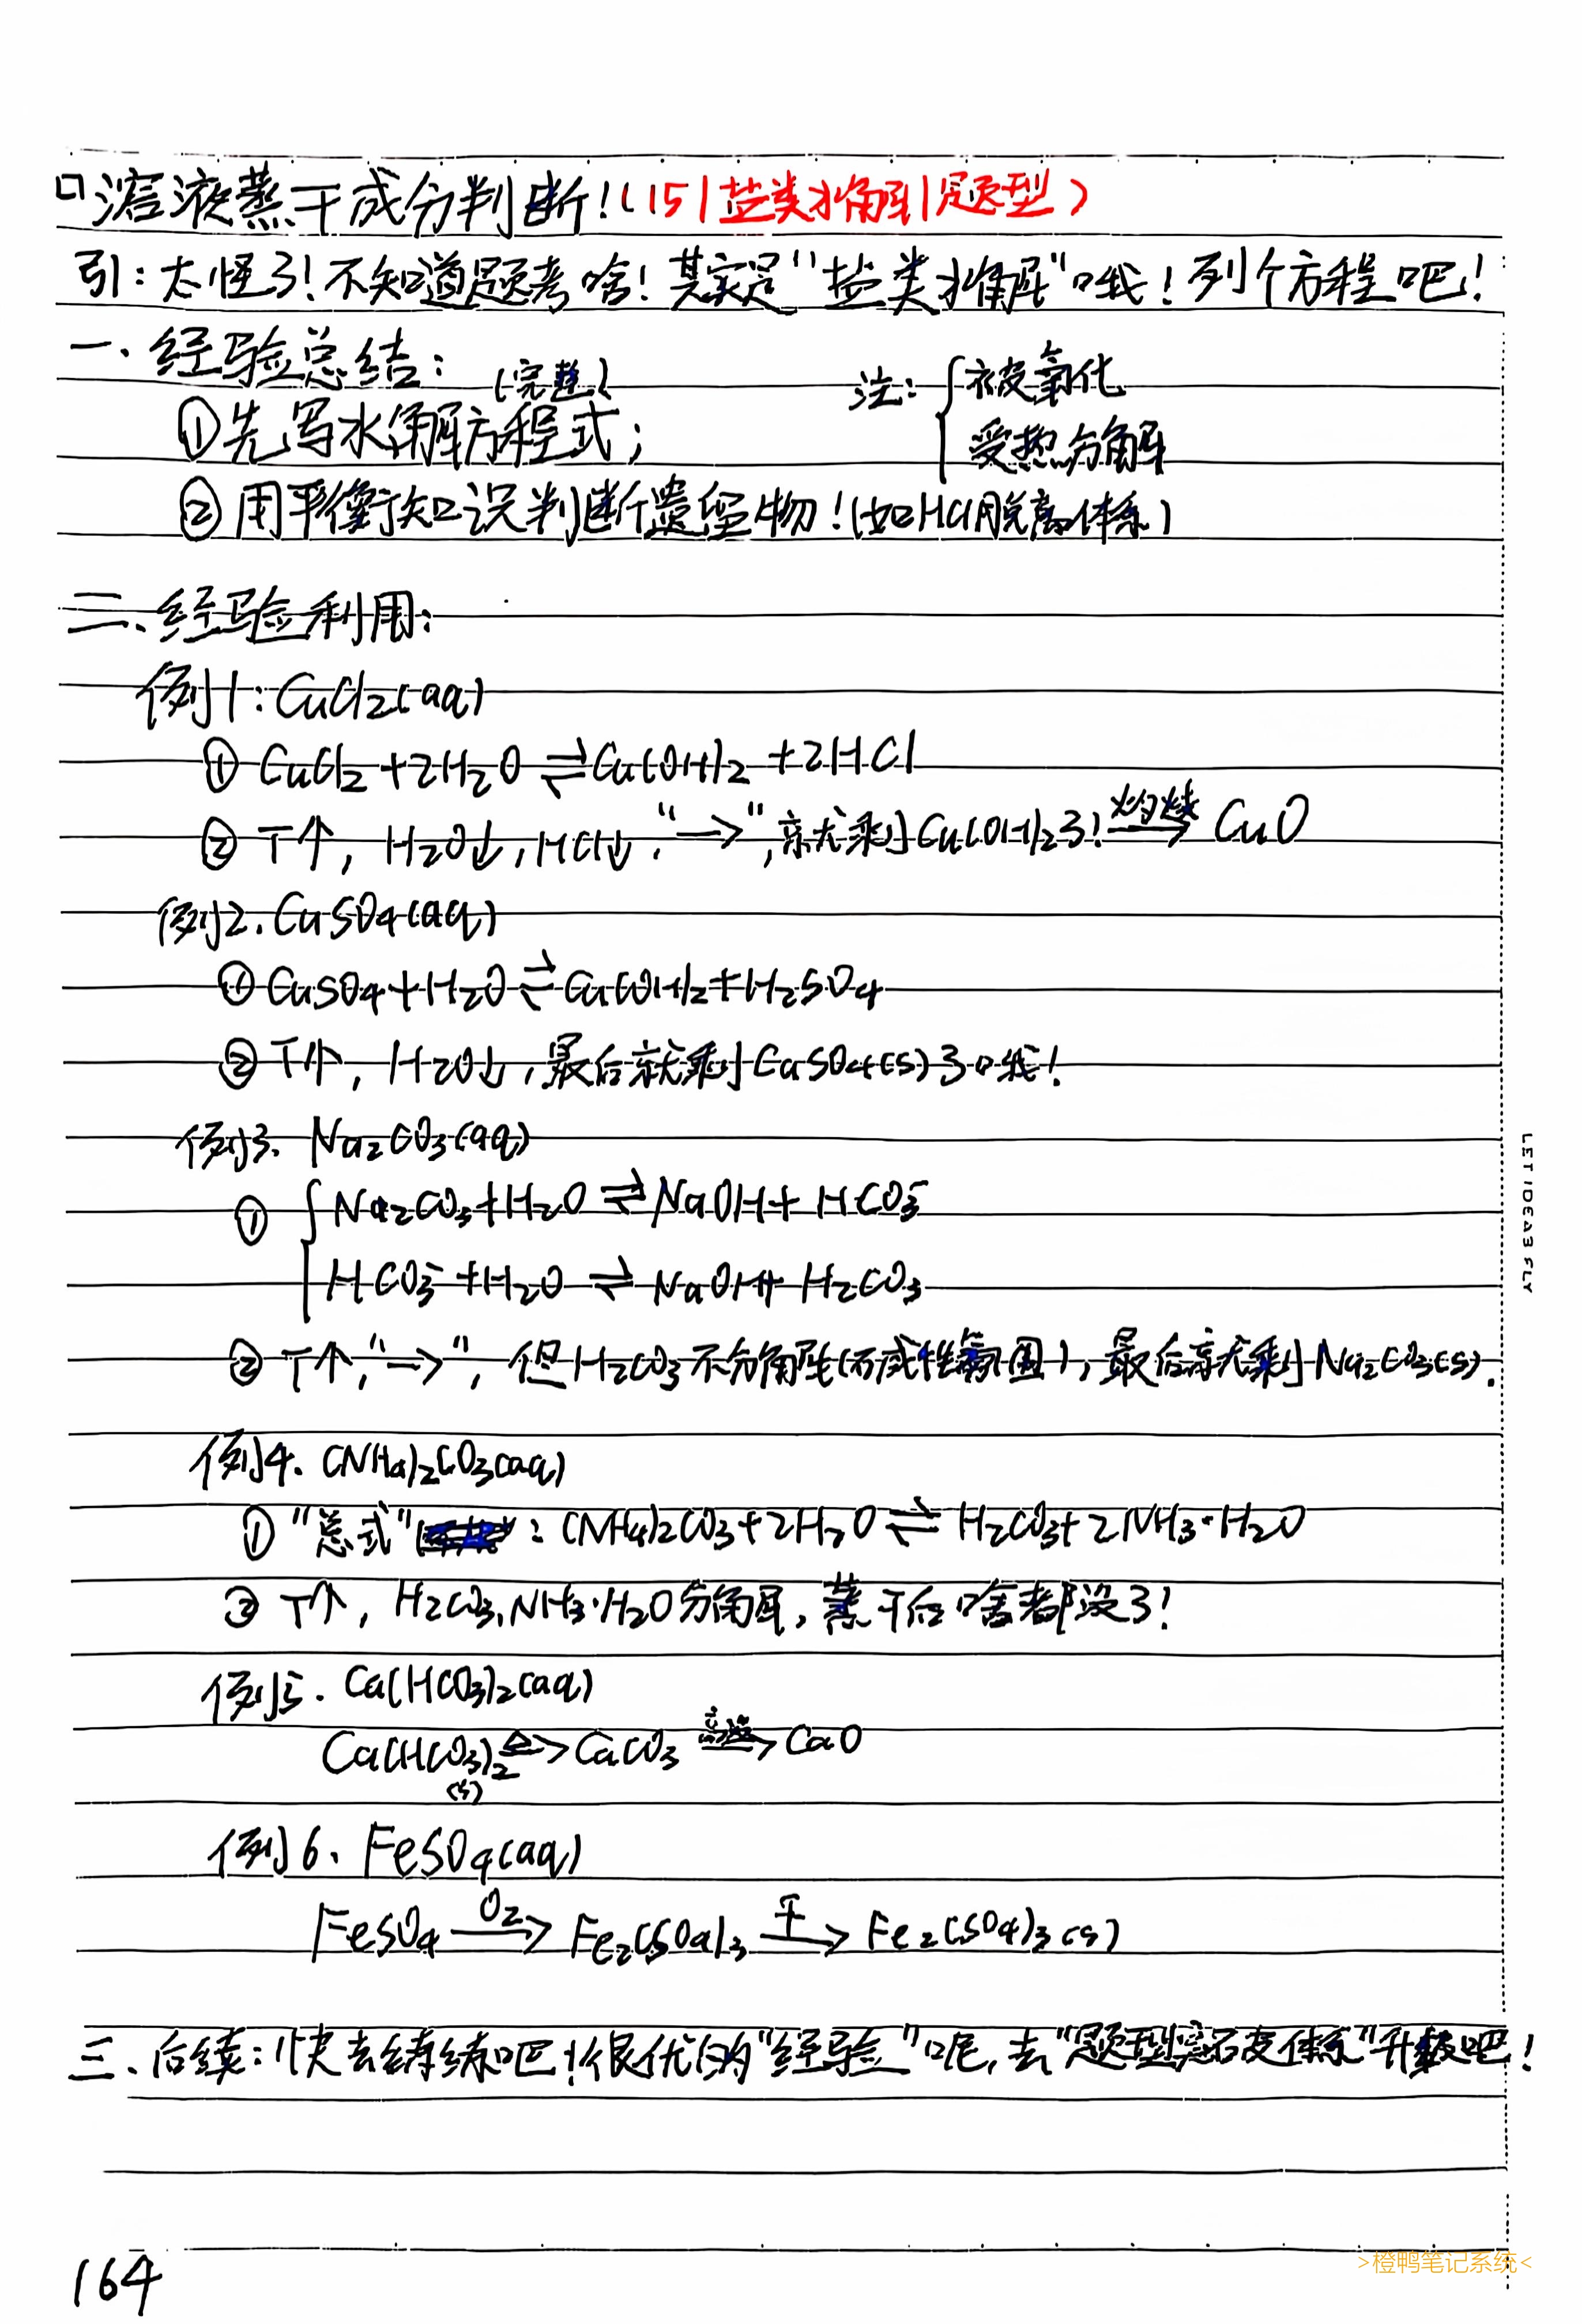 口溶液蒸干成分判断!(151盐类水解引题型)
引:太怪了!不知道题考啥!其实是"盐类水解"哦!列个方程吧!
一、经验总结:
(完整)
①先写水解方程式;
注:{被氧化
受热分解
②用平衡知识判断遗留物!(如HCl脱离体系)
二、经验利用:
例1:CuCl₂(aq)
① CuCl₂+2H₂O⇌Cu(OH)₂+2HCl
② T↑, H₂O↓, HCl↓, "→", 就剩Cu(OH)₂了! 灼烧→ CuO
例2. CuSO₄(aq)
① CuSO₄+H₂O⇌Cu(OH)₂+H₂SO₄
② T↑, H₂O↓, 最后就剩CuSO₄(s)了哦!
例3. Na₂CO₃(aq)
① {Na₂CO₃+H₂O⇌NaOH+HCO₃⁻
HCO₃⁻+H₂O⇌NaOH+H₂CO₃
② T↑, "→", 但H₂CO₃不分解(碱性氛围), 最后就剩Na₂CO₃(s).
例4. (NH₄)₂CO₃(aq)
① "总式": (NH₄)₂CO₃+2H₂O⇌H₂CO₃+2NH₃·H₂O
② T↑, H₂CO₃、NH₃·H₂O分解, 蒸干后啥都没了!
例5. Ca(HCO₃)₂(aq)
Ca(HCO₃)₂(s) △→ CaCO₃ 高温→ CaO
例6、FeSO₄(aq)
FeSO₄ O₂→ Fe₂(SO₄)₃ 干→ Fe₂(SO₄)₃(s)
三、后续:快去练练吧!很优的"经验"呢, 去"题型体系"升级吧!
LET IDEAS FLY
164
>橙鸭笔记系统<